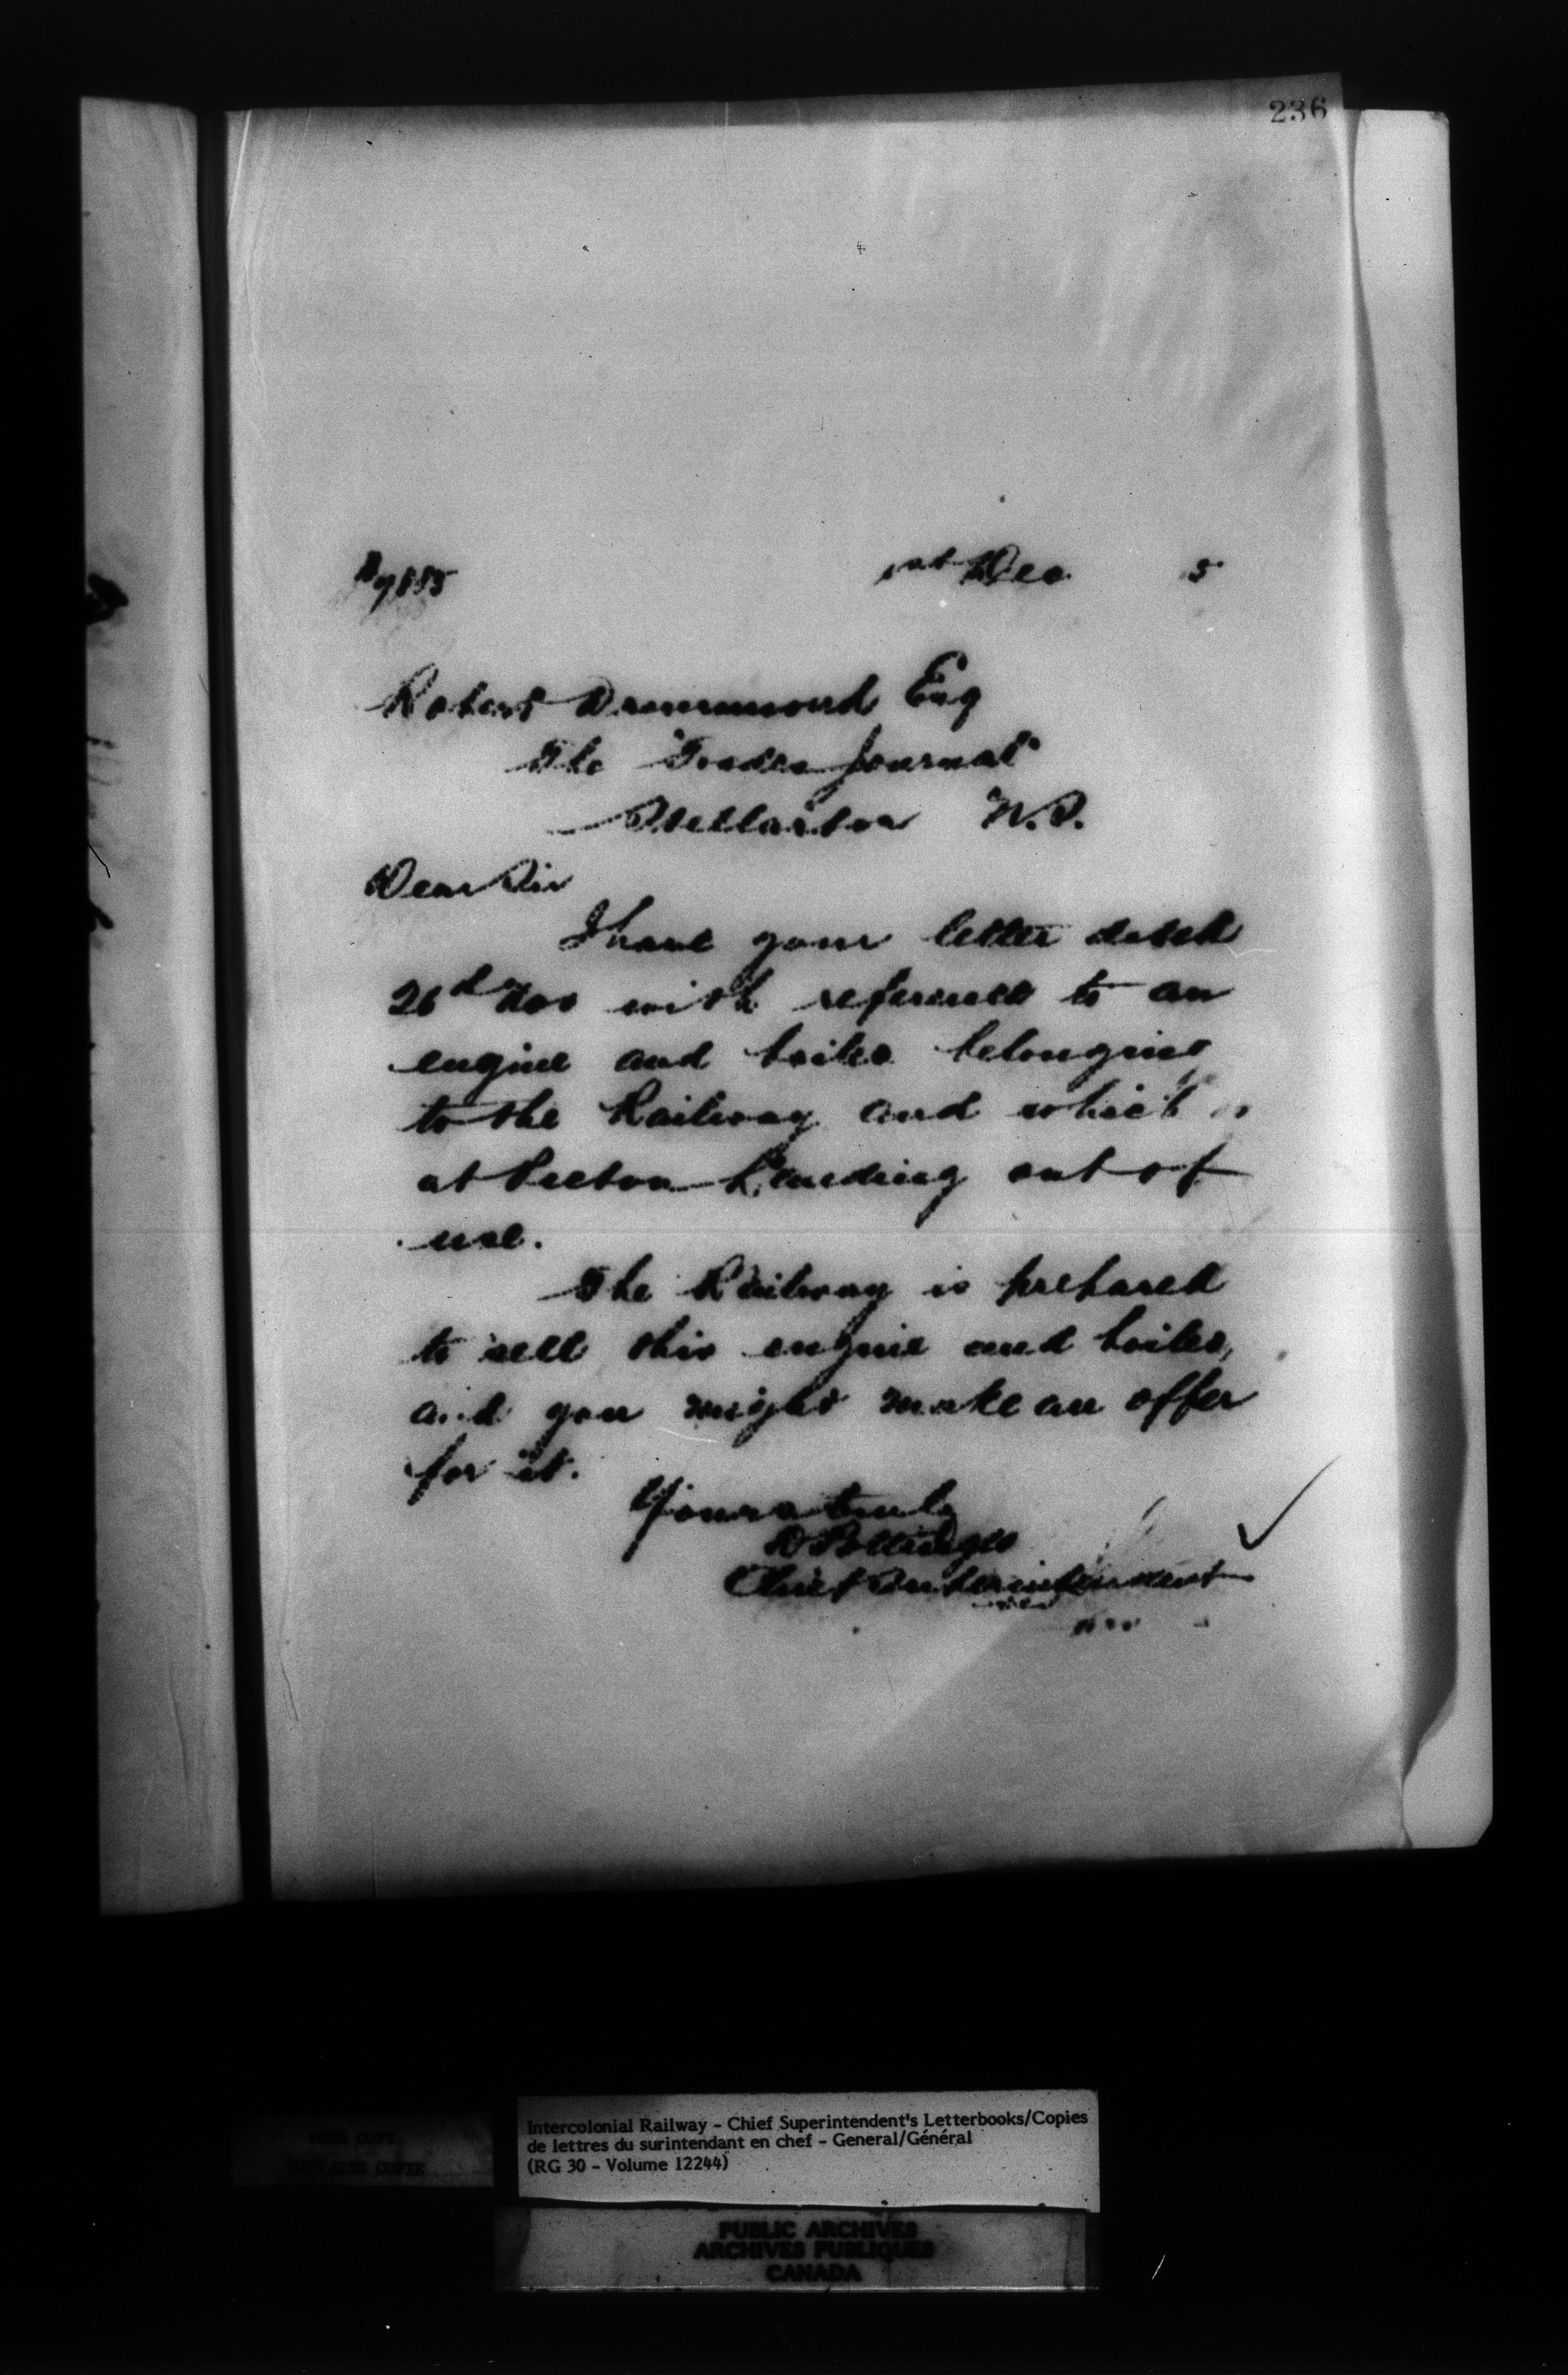 236
1st Dec 5
Robert Drummond Esq
The "Trades Journal"
Stellarton N.S.
Dear Sir
I have your letter dated
26th Nov with reference to an
engine and boiler belonging
to the Railway and which is
at Pictou Landing out of
use.
The Railway is prepared
to sell this engine and boiler,
and you might make an offer
for it.
Yours truly
D Pottinger
Chief Superintendent
POOR COPY
MAUVAISE COPIE
Intercolonial Railway - Chief Superintendent's Letterbooks/Copies
de lettres du surintendant en chef - General/Général
(RG 30 - Volume 12244)
PUBLIC ARCHIVES
ARCHIVES PUBLIQUES
CANADA